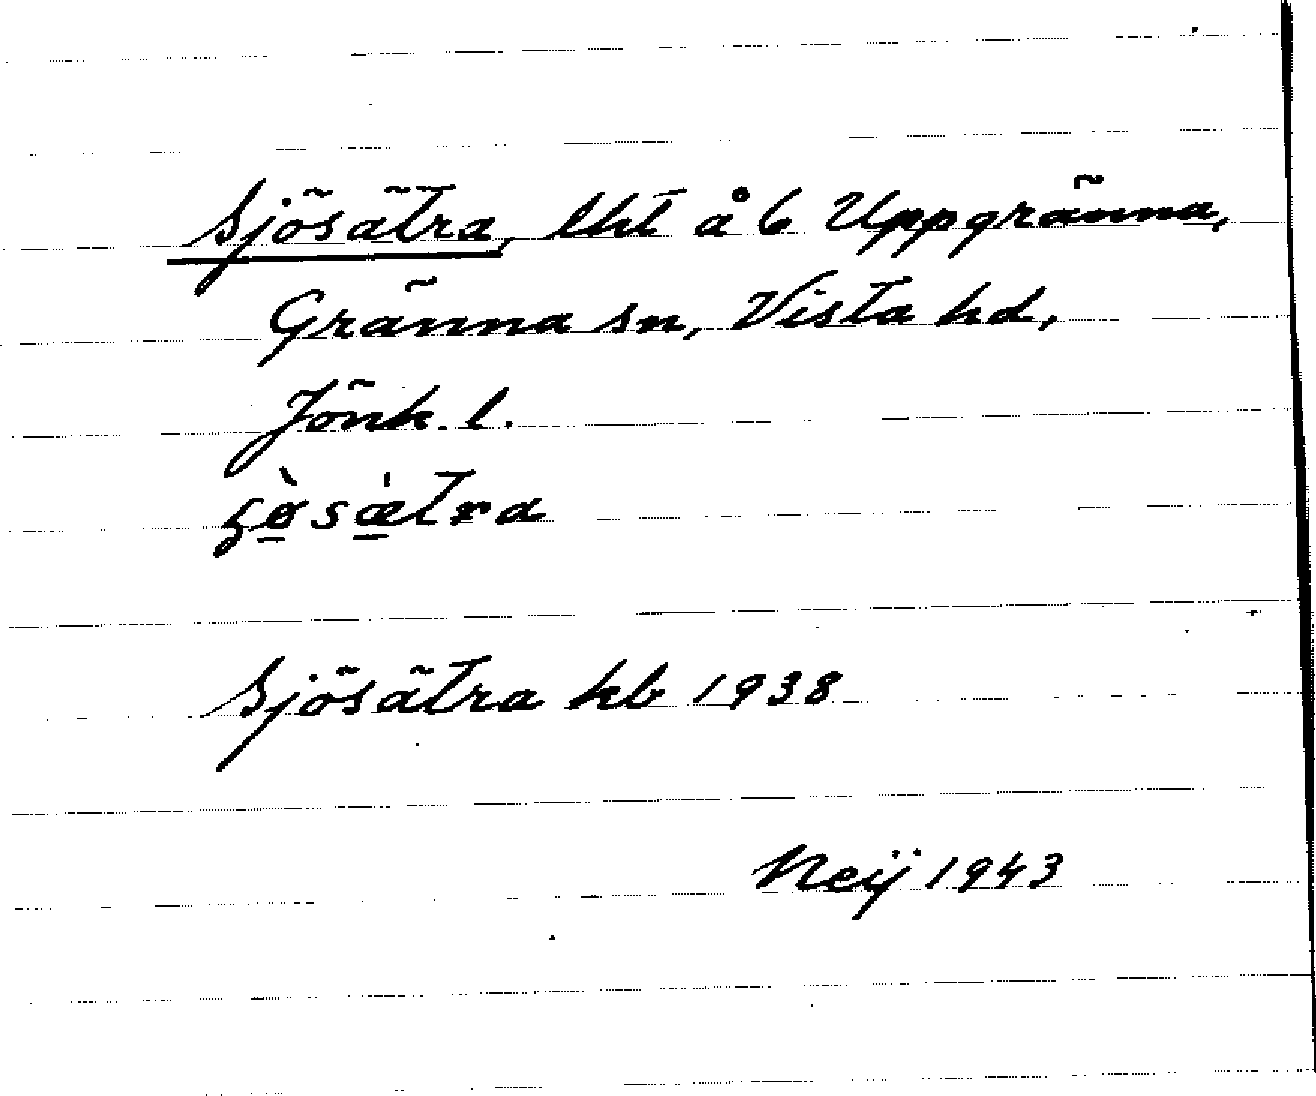 Sjösätra, lht å 6 Uppgränna,
Gränna sn, Vista hd,
Jönk. l.
Sjösätra kb 1938
Neij 1943